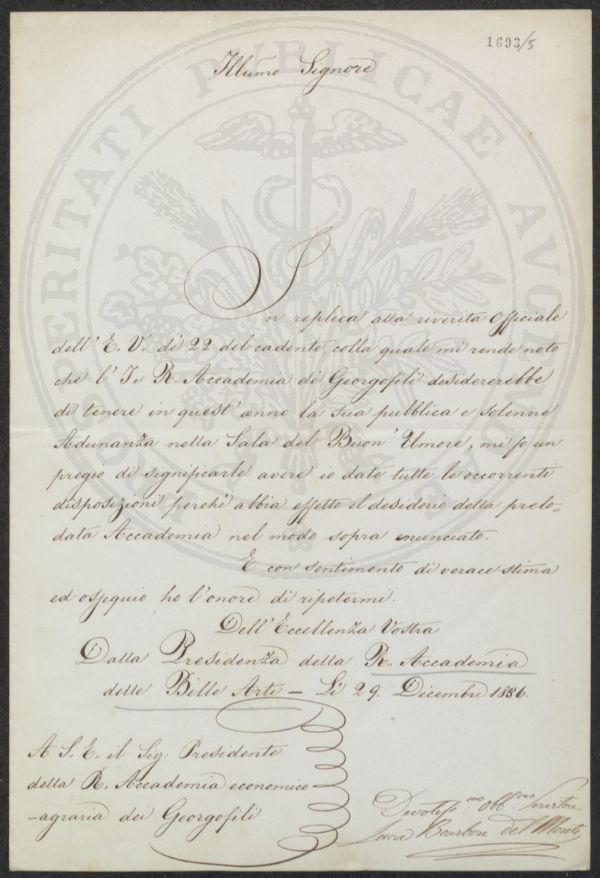 1693/5
Illumo Signore
In replica alla riverita Officiale
dell' E. V. de' 22 del cadente, colla quale mi rende noto
che l' I. e R. Accademia di Georgofili desidererebbe
di tenere in quest' anno la sua pubblica e solenne
Adunanza nella Sala del Buon' Umore, mi fo un
pregio di significarle avere io date tutte le occorrenti
disposizioni perchè abbia effetto il desiderio della prelo-
data Accademia nel modo sopra enunciato.
E con sentimento di verace stima
ed ossequio ho l'onore di ripetermi.
Dell' Eccellenza Vostra
Dalla Presidenza della R. Accademia
delle Belle Arti – Li 29. Dicembre 1856.
A S. E. il Sig. Presidente
della R. Accademia economico
-agraria dei Georgofili
Devotiss.mo obb.mo Servitore
Bourbon del Monte
PROSPERITATI PUBLICAE AUGENDAE